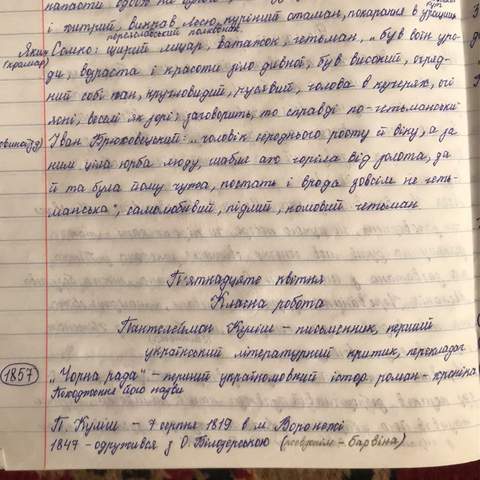 напасти
і хитрий, викрав Лесю, курінний отаман, покарання в
переяславський полковник.
Яким Сомко: щирий лицар, ватажок, гетьман, „був воїн уро-
(крамар)
ди, возраста і красоти зіло дивної, був високий, огряд-
ний собі пан, кругловидий, русявий, голова в кучерях, очі
ясні, веселі як зорі; заговорить, то справді по-гетьманськи
Іван Брюховецький: „чоловік середнього росту й віку, а за
ним ціла юрба люду, шабля аж горіла від золота, да
й та була йому чужа, постать і врода зовсім не геть-
манська", самолюбивий, підлий, комовий гетьман
П'ятнадцяте квітня
Класна робота
Пантелеймон Куліш – письменник, перший
український літературний критик, перекладач
1857 „Чорна рада" – перший україномовний істор. роман-хроніка
Походження його назви
П. Куліш – 7 серпня 1819 в м. Воронежі
1847 – одружився з О. Білозерською (псевдонім – Барвінок)